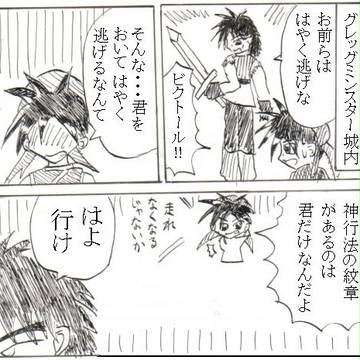 グレッグミンスター城内
お前らは
はやく逃げな
ビクトール!!
そんな・・・君を
おいてはやく
逃げるなんて
神行法の紋章
があるのは
君だけなんだよ
走れ
なくなる
じゃないか
はよ
行け